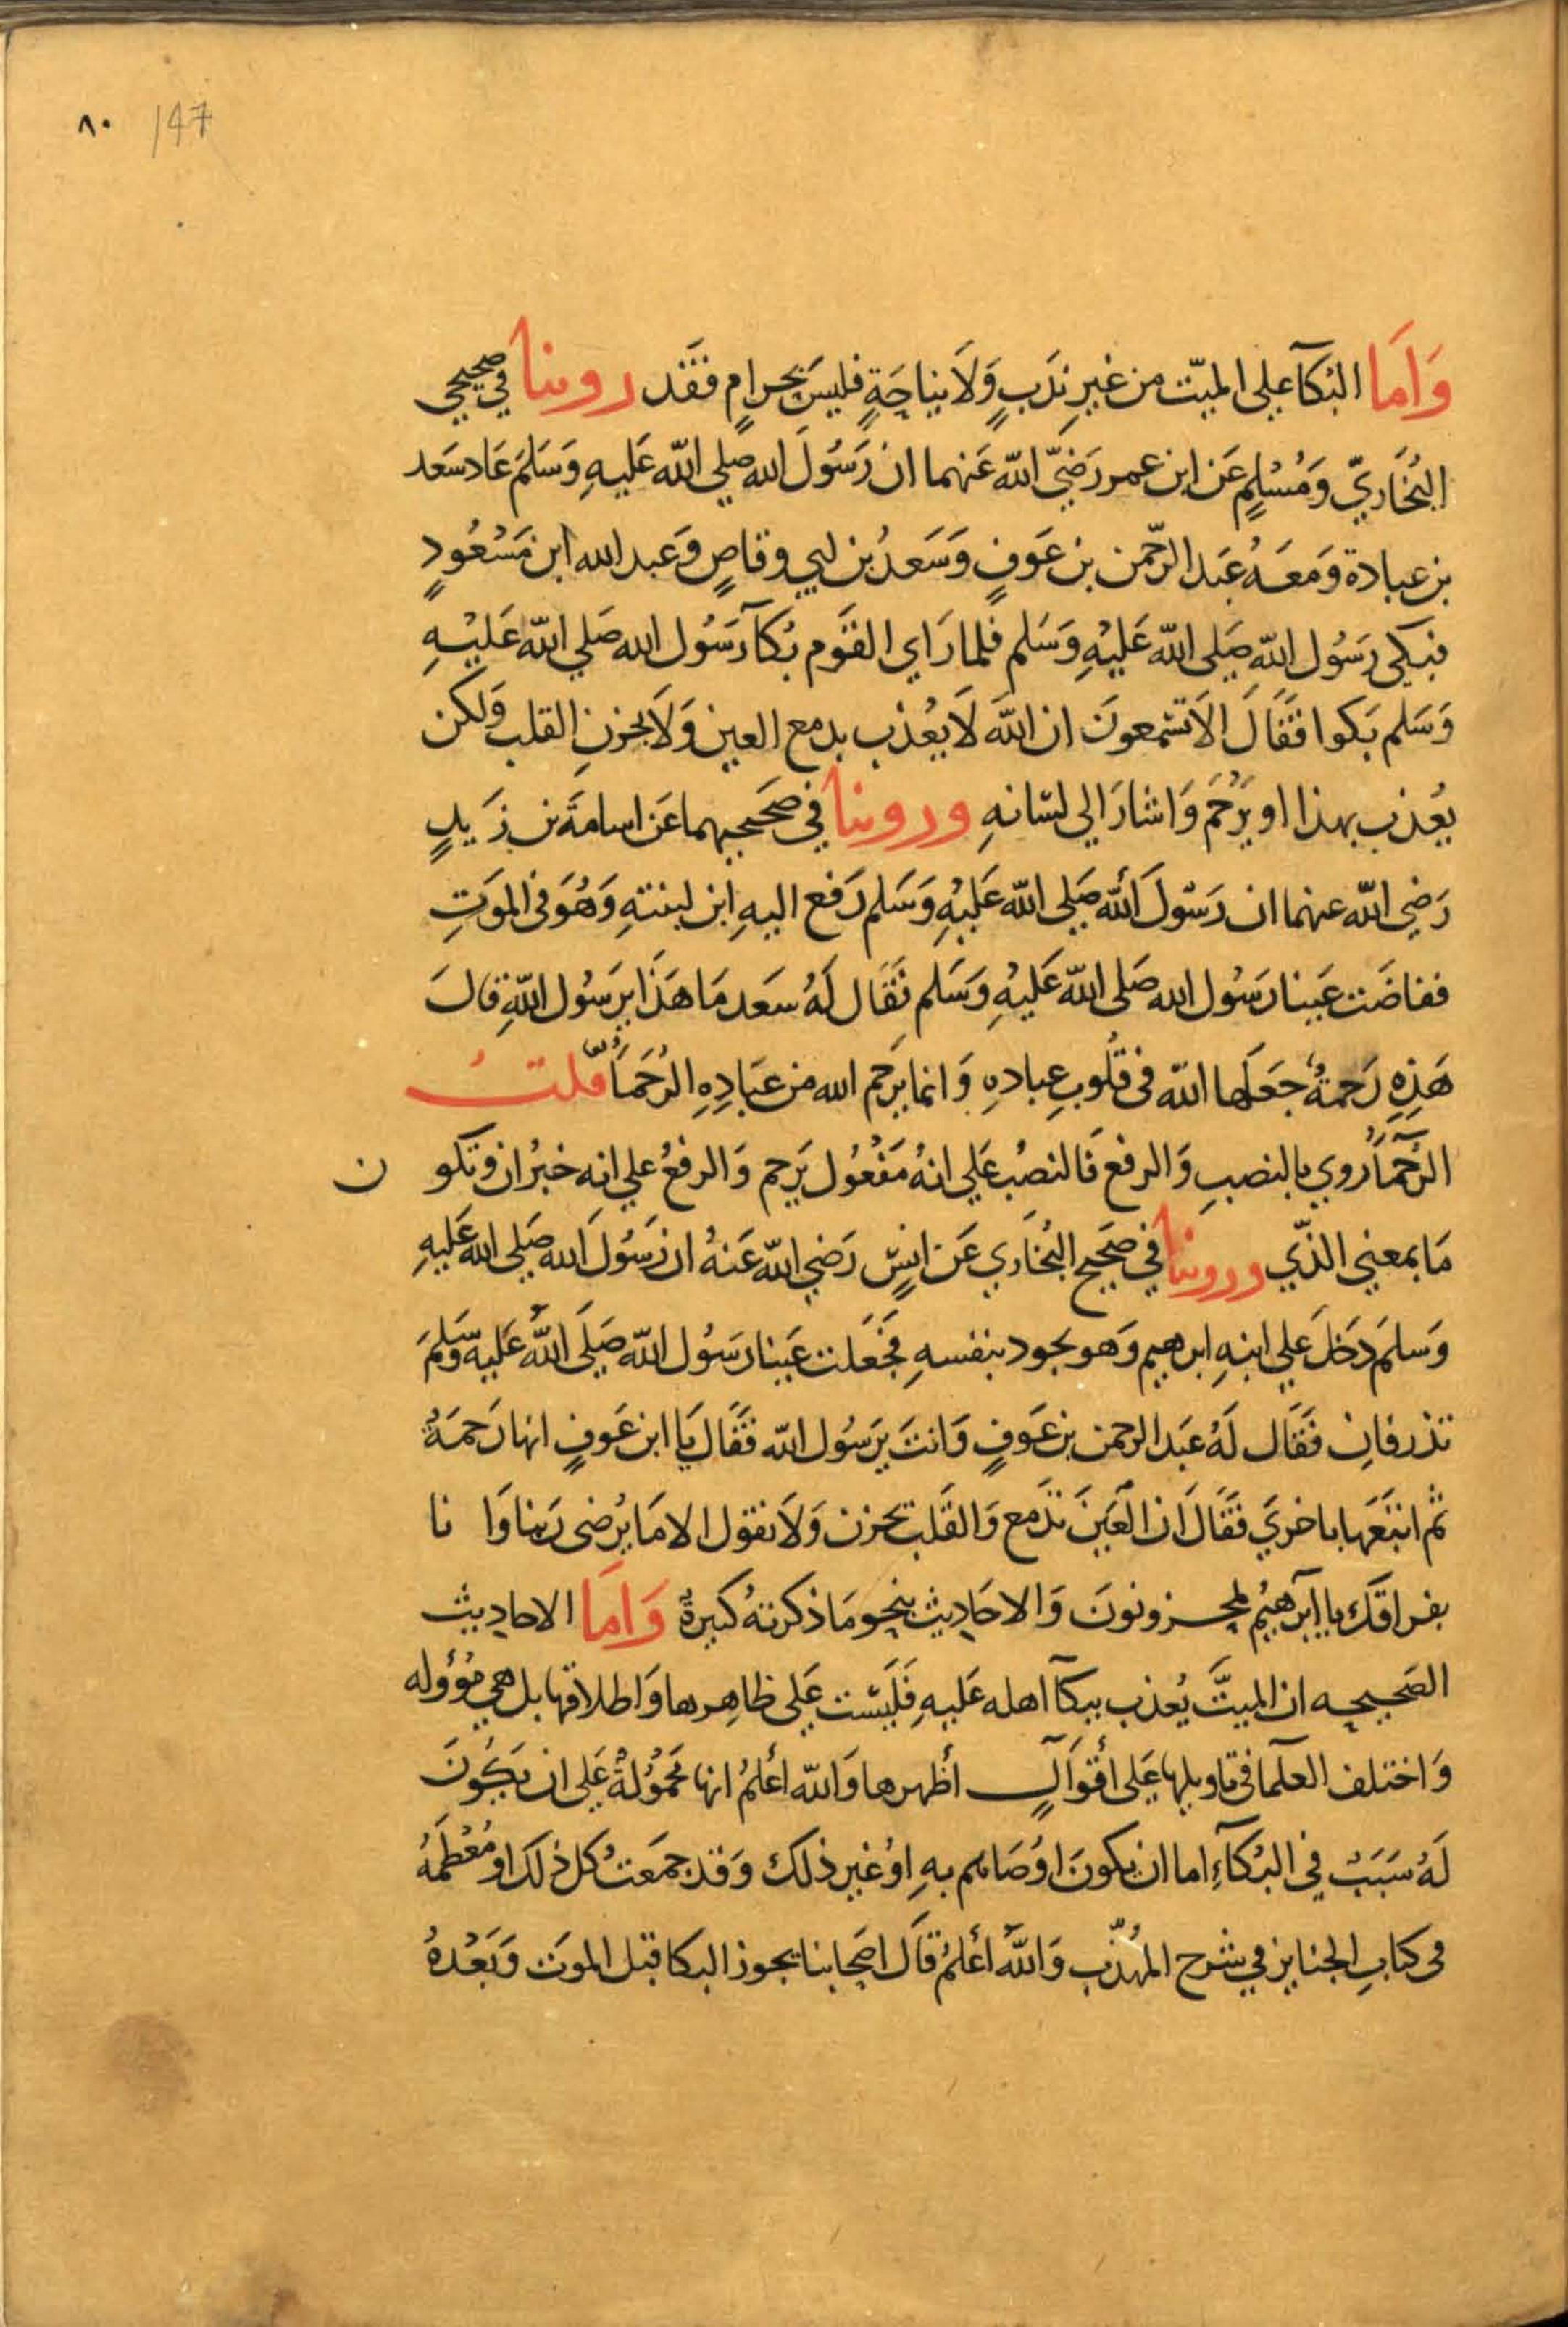 ٨٠ 147
وَاَما البُكآ علي الميّت من غيرِ نَدبٍ وَلَا بنياحَةٍ فليسَ بحرامٍ فقَد روينا في صحيحي
البُخَاريّ وَمُسْلمٍ عَن ابن عمر رَضيَّ اللّه عَنهما ان رَسُولَ الله صلي اللّه عَليهِ وَسَلمَ عَاد سَعد
بن عبادة وَمَعَهُ عَبد الرّحمن بن عَوفٍ وَسَعدُ بن ابي وقاصٍ وَعبد الله ابن مَسْعُودٍ
فبكى رسَُول اللّه صَلي اللّه عَليْهِ وَسَلم فلما رَاي القَوم بُكآ رَسُول الله صَلي اللّه عَليْهِ
وَسَلم بَكوا فقَالَ الَا تسْمعونَ ان اللّهَ لَا يُعْذب بدمع العين وَلَا بحزنِ القلب وَلكن
يُعْذب بهذا او يَرْحُمَ وَاشارَ الي لسَانهِ وروينا في صَحيحيهما عَن اسامَةَ بن زَيدٍ
رَضِي اللّه عنهما ان رَسُولَ اللّه صَلي اللّه عَليْهِ وَسَلم رَفع اليهِ ابن لبنتهِ وَهُوَ في الموَتِ
ففاضَت عَينا رَسُول الله صَلى اللّه عَليْهِ وَسَلم فَقَال لَهُ سَعد مَا هَذَا يرَسُول اللّهِ قالَ
هَذِهِ رَحمةٌ جَعَلها اللّه في قلُوبِ عبادهِ وَانما يرَحم الله من عبَادِهِ الرُحَمَآُ قلتُ
الرُحَمَآُ روي بالنصبِ وَالرفع فَالنصُب عَلي انهُ مَفْعُول يَرحم وَالرفعُ علي انه خبرُ ان وتكو ن
مَا بمعني الذّي وروينا في صَحيح البُخَاري عَن انسٍ رَضي اللّه عَنهُ ان رَسُولَ الله صَلي الله عَليهِ
وَسلمَ دَخلَ عَلي ابنهِ ابرهيم وَهو يجود بنفسهِ فجَعَلت عَينا رسَُول اللّه صَلَى اللّهُ عَليهِ وَسَلمَ
تذرفانِ فَقَال لَهُ عَبد الرحمن بن عَوفٍ وَانتَ يرَسُول اللّه فقَال يَا ابن عَوفٍ انها رَحمَةٌ
ثم اتبَعَها باخريَ فقَالَ ان العَينَ تدَمع وَالقَلب يحزن وَلَا نقول الا مَا يُرضى رَبنا وَا نا
بفراقَك يا ابرَاهيُم لمحزونونَ وَالاحَاديث بنحو مَا ذكرتهُ كثيرةٌ وَامَا الاحاديث
الصَحيحه ان الميتَّ يُعذب ببكآ اهله عَليهِ فَليَسَت عَلى ظاهِرها وَاطلاقها بل هي مؤوله
وَاختلف العلَمآ في تاويلها عَلى أقوَالٍ أظهرها وَاللّه اعْلمُ انها محمُوُلةٌ عَلي ان يَكُونَ
لَهُ سَبَبٌ في البُكَآءِ اما ان يكونَ اوُصَاهم بهِ اوُ غير ذلك وَقد جمَعتُ كل ذلكَ او مُعْظمَهُ
في كتابِ الجنايز في شرح المُهذّب وَاللّهُ اعْلمُ قاَل اصَحابنا يجوز البكا قبل الموَت وَبَعْدهُ